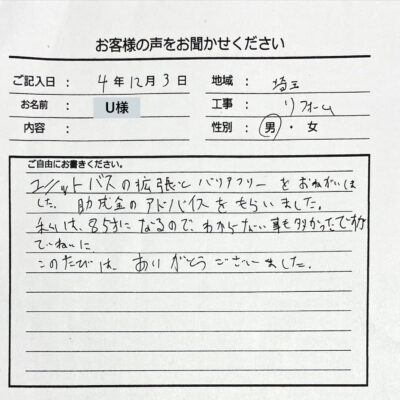 お客様の声をお聞かせください
ご記入日： 4年12月3日 地域： 埼玉
お名前 U様 工事： リフォーム
内容： 性別： 男・女
ご自由にお書きください。
ユニットバスの拡張とバリアフリーをおねがいしま
した。助成金のアドバイスをもらいました。
私は、85才になるので、わからない事も多かったですが
ていねいに
このたびは、ありがとうございました。